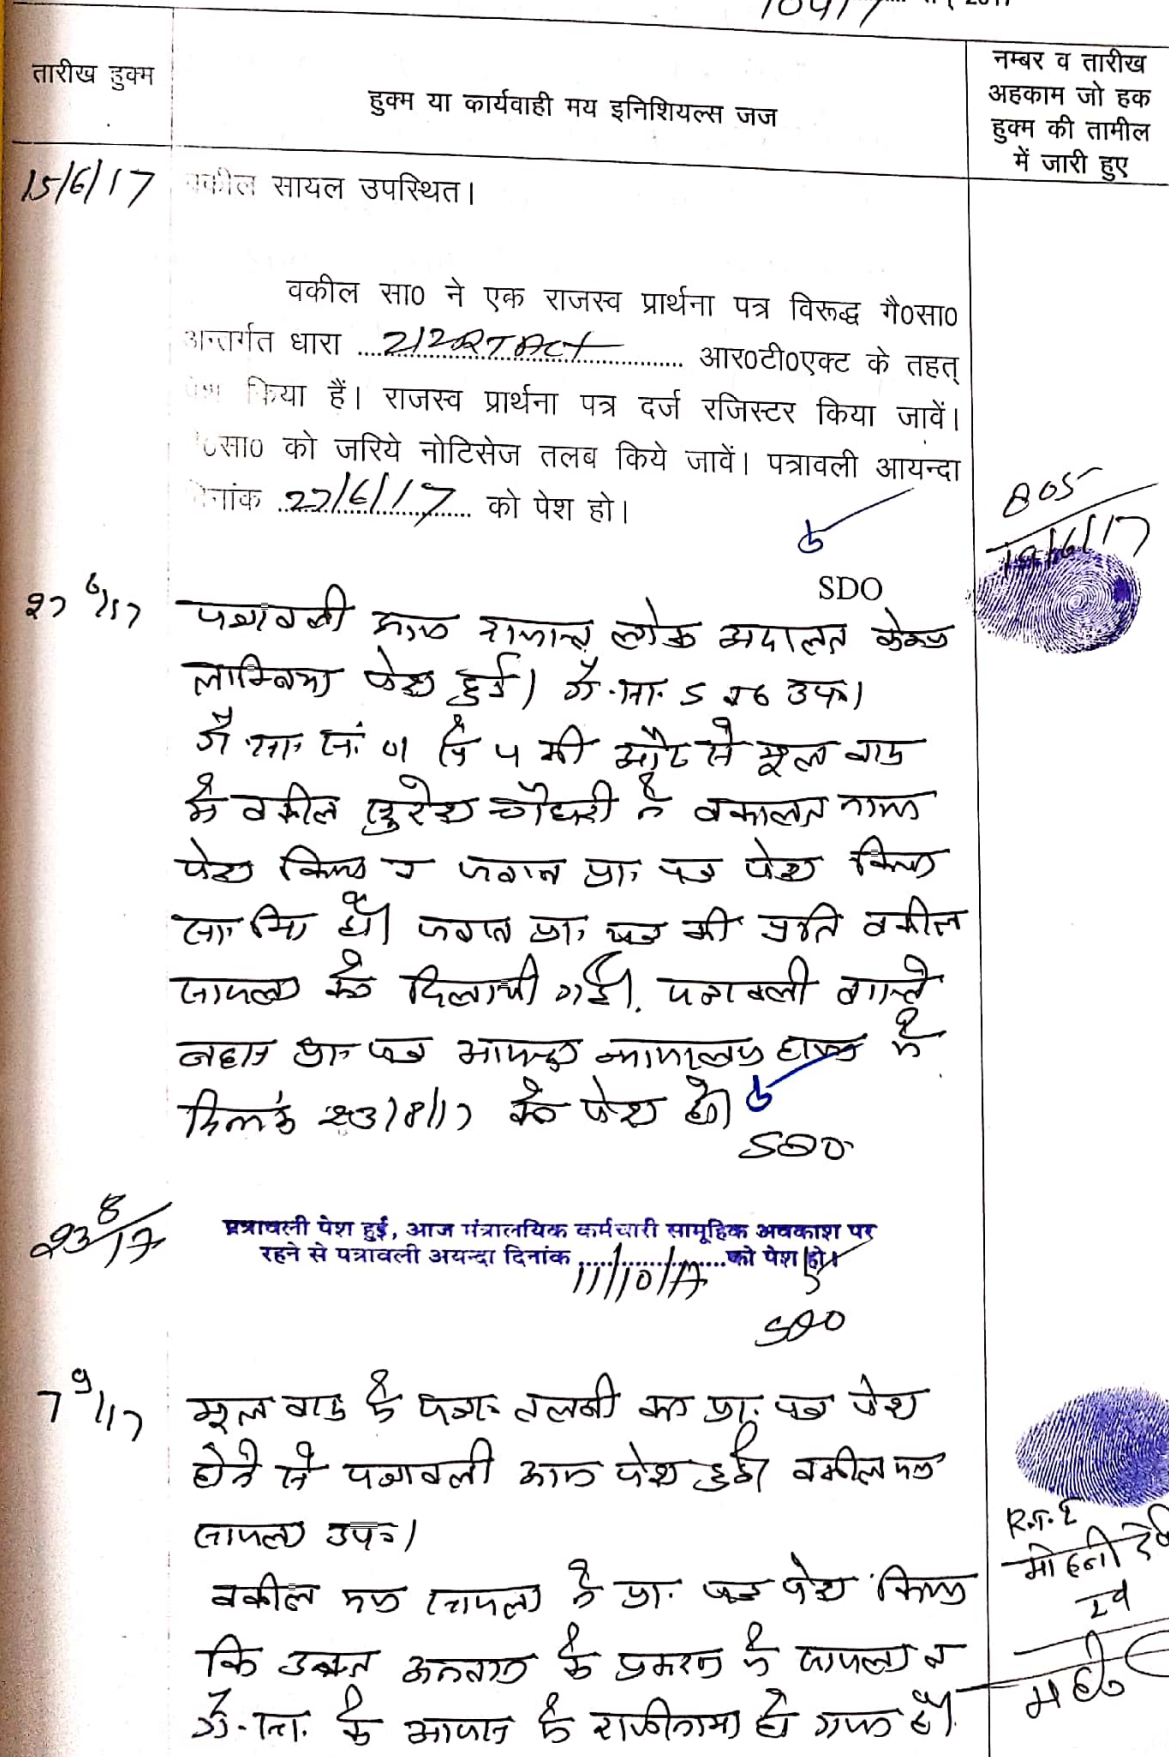 तारीख हुक्म
हुक्म या कार्यवाही मय इनिशियल्स जज
नम्बर व तारीख
अहकाम जो हक
हुक्म की तामील
में जारी हुए
15/6/17
वकील सायल उपस्थित।
वकील सा0 ने एक राजस्व प्रार्थना पत्र विरूद्ध गै0सा0
अन्तर्गत धारा 212 RT Act आर0टी0एक्ट के तहत्
पेश किया हैं। राजस्व प्रार्थना पत्र दर्ज रजिस्टर किया जावें।
सा0 को जरिये नोटिसेज तलब किये जावें। पत्रावली आयन्दा
दिनांक 27/6/17 को पेश हो।
SDO
805
19/6/17
27 6/17
पत्रावली आज राजस्व लोक अदालत केम्प
लाम्बिया पेश हुई। गै.सा. 5 व 6 उप.।
गै.सा. सं. 01 से 4 की ओर से मूल वाद
के वकील सुरेश चौधरी ने वकालत नामा
पेश किया व जवाब प्रा. पत्र पेश किया
सा. मि हो। जवाब प्रा. पत्र की प्रति वकील
सायला को दिलायी गई। पत्रावली वास्ते
बहस प्रा. पत्र आयन्दा न्यायालय हाजा में
दिनांक 23/8/17 को पेश हो।
SDO
23 8/17
पत्रावली पेश हुई, आज मंत्रालयिक कर्मचारी सामूहिक अवकाश पर
रहने से पत्रावली अयन्दा दिनांक 11/10/17 को पेश हो।
SDO
7 9/17
मूल वाद में पत्रा. तलबी का प्रा. पत्र पेश
होने से पत्रावली आज पेश हुई। वकील मय
सायला उप.।
वकील मय सायला ने प्रा. पत्र पेश किया
कि उक्त अनवान के प्रकरण में सायला व
गै.सा. के आपस में राजीनामा हो गया है।
मोहनी